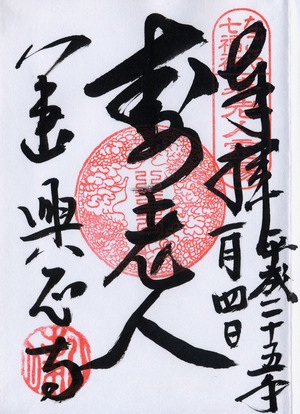 奉拝
平成二十五年
一月四日
寿老人
八事山
興正寺
七福